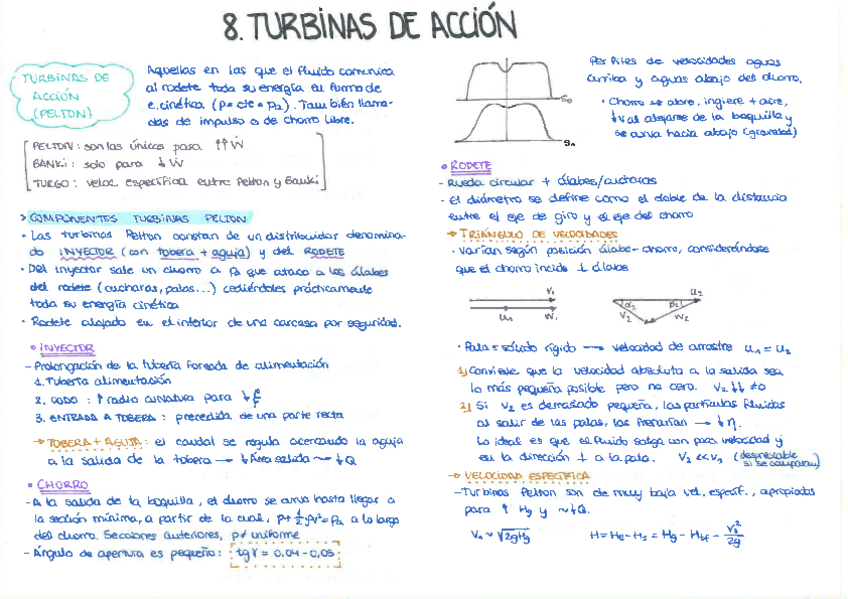 8. TURBINAS DE ACCIÓN
TURBINAS DE
ACCIÓN
(PELTON)
Aquellas en las que el fluido comunica
al rodete toda su energía en forma de
e. cinética (p = cte = p2). También llama-
das de impulso o de chorro libre.
PELTON: son las únicas para ↑↑ Ẇ
BANKI: solo para ↓ Ẇ
TURGO: veloc específica entre Pelton y Banki
> COMPONENTES TURBINAS PELTON
· Las turbinas Pelton constan de un distribuidor denomina-
do INYECTOR (con tobera + aguja) y del RODETE
· Del inyector sale un chorro a que ataca a los álabes
del rodete (cucharas, palas...) cediéndoles prácticamente
toda su energía cinética
· Rodete alojado en el interior de una carcasa por seguridad.
• INYECTOR
- Prolongación de la tubería forzada de alimentación
1. Tubería alimentación
2. CODO: ↑ radio curvatura para ↓
3. ENTRADA A TOBERA: precedida de una parte recta
→ TOBERA + AGUJA: el caudal se regula acercando la aguja
a la salida de la tobera → ↓ Área salida ~→ ↓ Q
• CHORRO
- A la salida de la boquilla, el chorro se curva hasta llegar a
la sección mínima, a partir de la cual, p + ½ρv² = pa a lo largo
del chorro. Secciones anteriores, p ≠ uniforme
- Ángulo de apertura es pequeño: tg γ = 0,04 - 0,05
S0
Sn
Perfiles de velocidades aguas
arriba y aguas abajo del chorro.
• Chorro se abre, ingiere + aire,
↓ v al alejarse de la boquilla y
se curva hacia abajo (gravedad)
• RODETE
- Rueda circular + álabes/cucharas
- El diámetro se define como el doble de la distancia
entre el eje de giro y el eje del chorro
→ TRIÁNGULO DE VELOCIDADES
· Varían según posición álabe-chorro, considerándose
que el chorro incide ⊥ álabe
v1
u1 w1
u2
α2 β2
v2 w2
· Pala = sólido rígido → velocidad de arrastre u1 = u2
1) Conviene que la velocidad absoluta a la salida sea
lo más pequeña posible pero no cero. v2 ↓↓ ≠ 0
2) Si v2 es demasiado pequeña, las partículas fluidas
al salir de las palas, las frenarían → ↓ η.
Lo ideal es que el fluido salga con poca velocidad y
en la dirección ⊥ a la pala. v2 << v1 (despreciable
si se comparan)
→ VELOCIDAD ESPECÍFICA
- Turbinas Pelton son de muy baja vel. específ., apropiadas
para ↑ Hg y ~↓ Q.
V1 ~ √2gHg H = He - Hs = Hg - Htf - v2²/2g